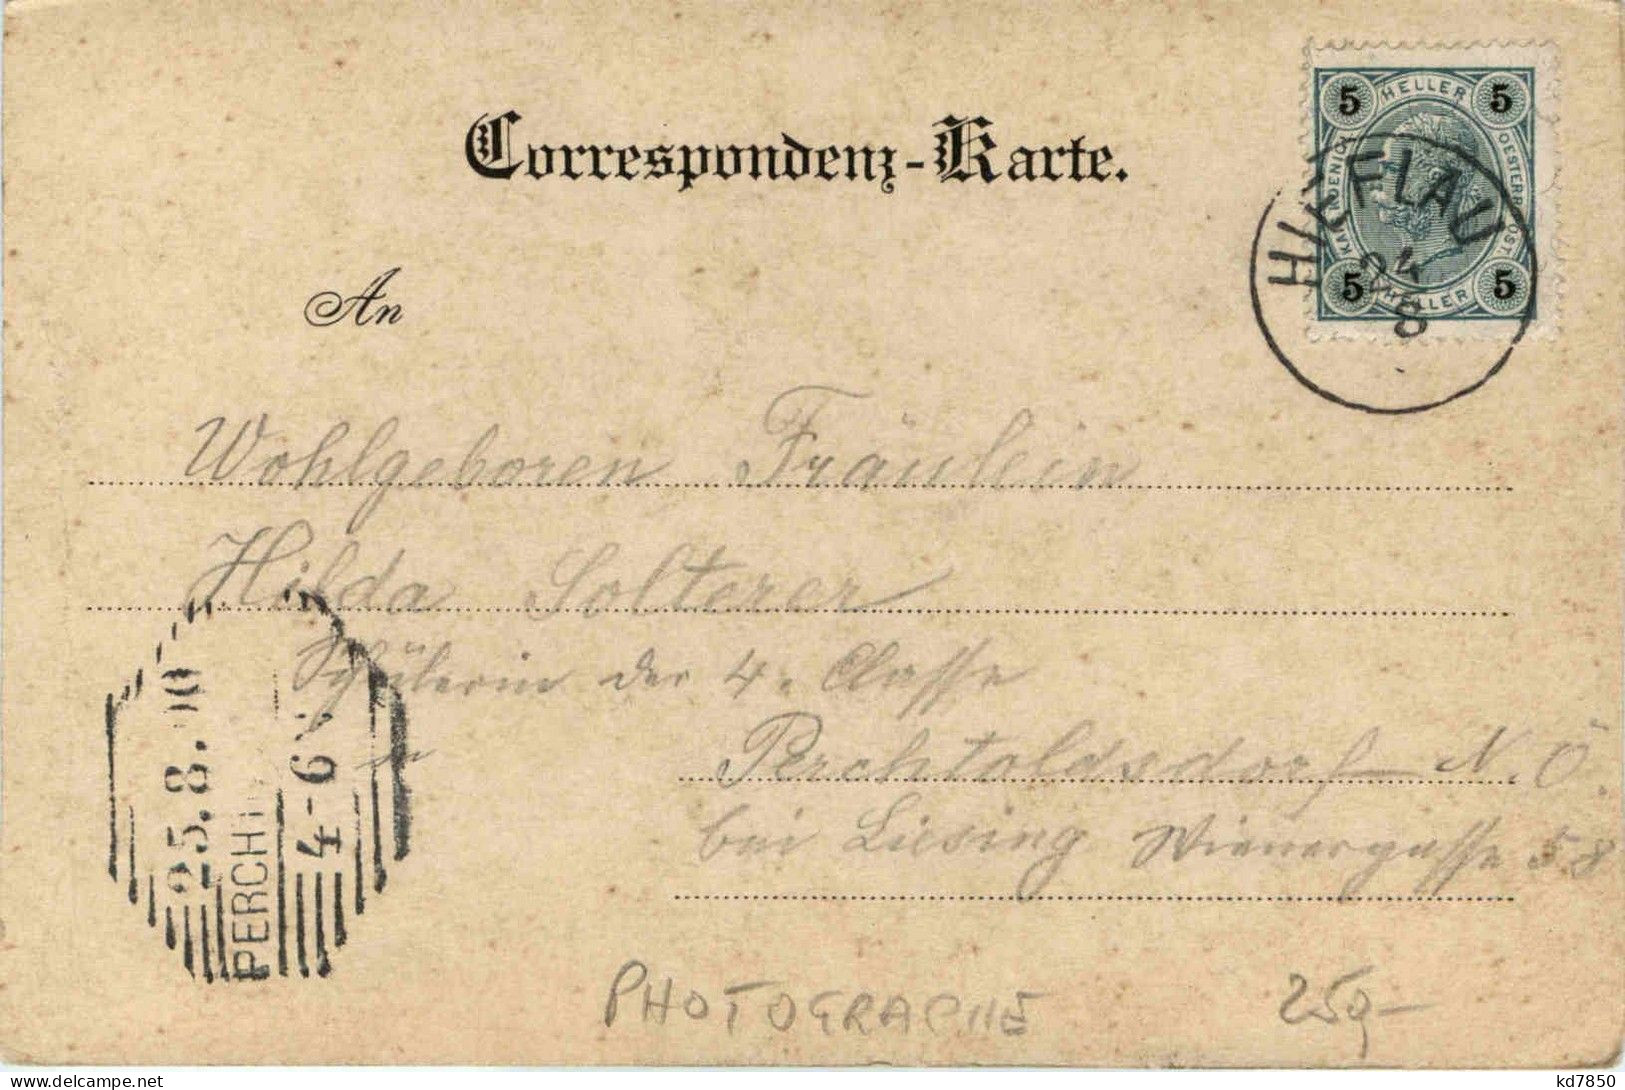 Correspondenz-Karte.
5 HELLER 5
KAIS. KOENIGL. OESTERR. POST.
5 HELLER 5
HIEFLAU
24
8
An
Wohlgeboren Fräulein
Hilda Solterer
Schülerin der 4. Classe
Perchtoldsdorf N. Ö.
bei Liesing Wienergasse 58
25.8.
PERCH
4-6
PHOTOGRAPHE
250,-
www.delcampe.net
kd7850